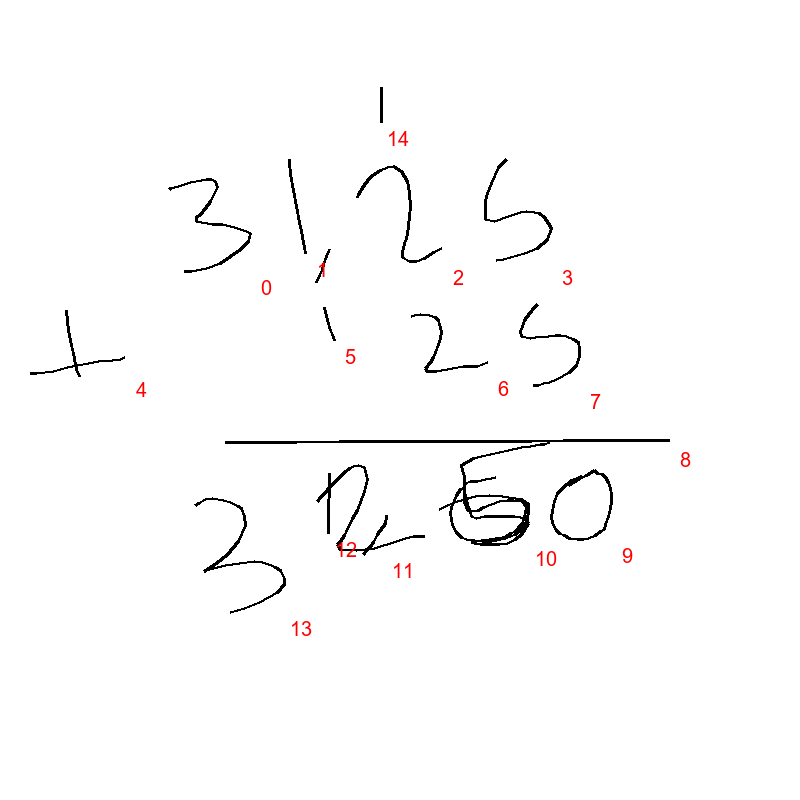 1
14
31,25
0 1 2 3
+ 1 25
4 5 6 7
8
32,50
12 11 10 9
13